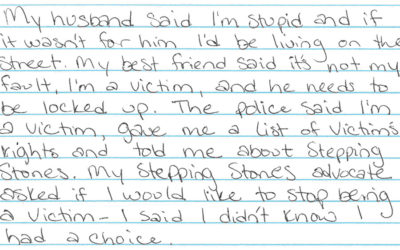 My husband said I'm stupid and if
it wasn't for him I'd be living on the
street. My best friend said it's not my
fault, I'm a victim, and he needs to
be locked up. The police said I'm
a victim, gave me a list of victims
rights and told me about Stepping
Stones. My Stepping Stones advocate
asked if I would like to stop being
a victim - I said I didn't know I
had a choice.